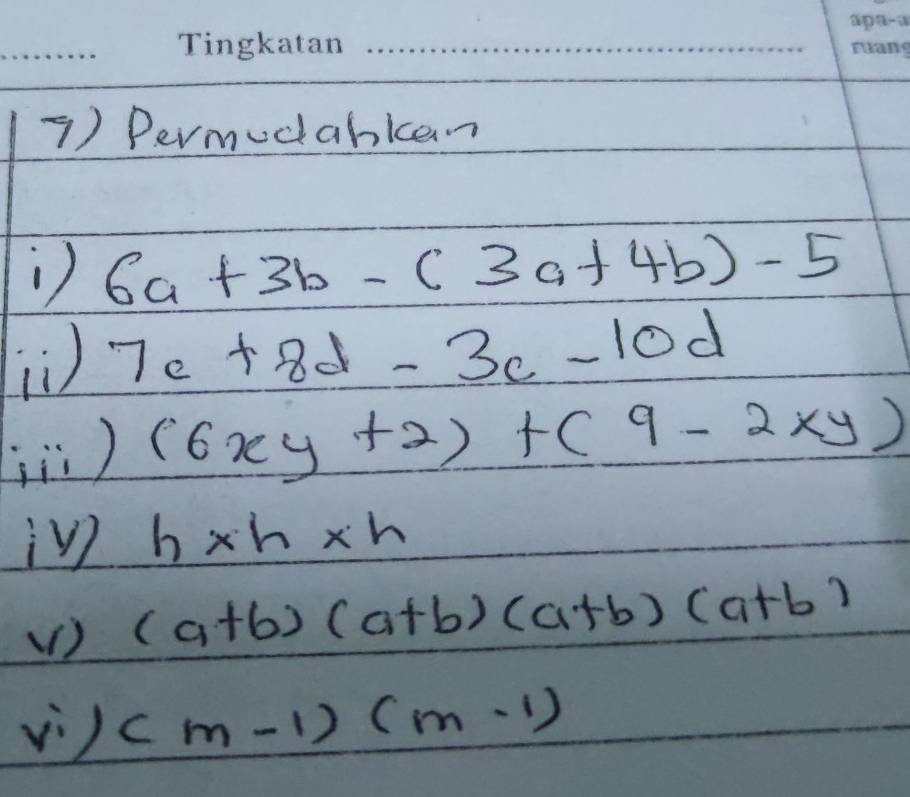 apa-a
............ Tingkatan ............................................................ ruang
7) Permudahkan
i) 6a + 3b - (3a + 4b) - 5
ii) 7c + 8d - 3c - 10d
iii) (6xy + 2) + (9 - 2xy)
iv) h × h × h
v) (a+b) (a+b) (a+b) (a+b)
vi) (m - 1) (m - 1)